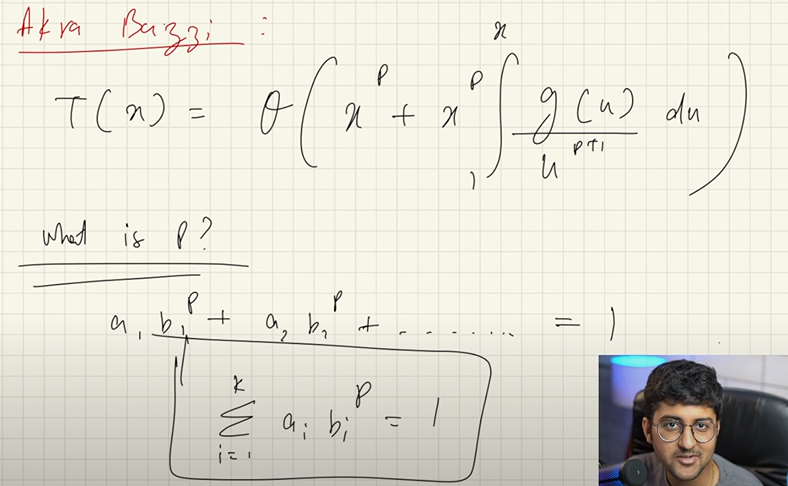 Akra Bazzi :
T(x) = θ(x^p + x^p ∫_1^x g(u)/u^(p+1) du)
What is P?
a_1 b_1^p + a_2 b_2^p + ........ = 1
∑_{i=1}^{k} a_i b_i^p = 1